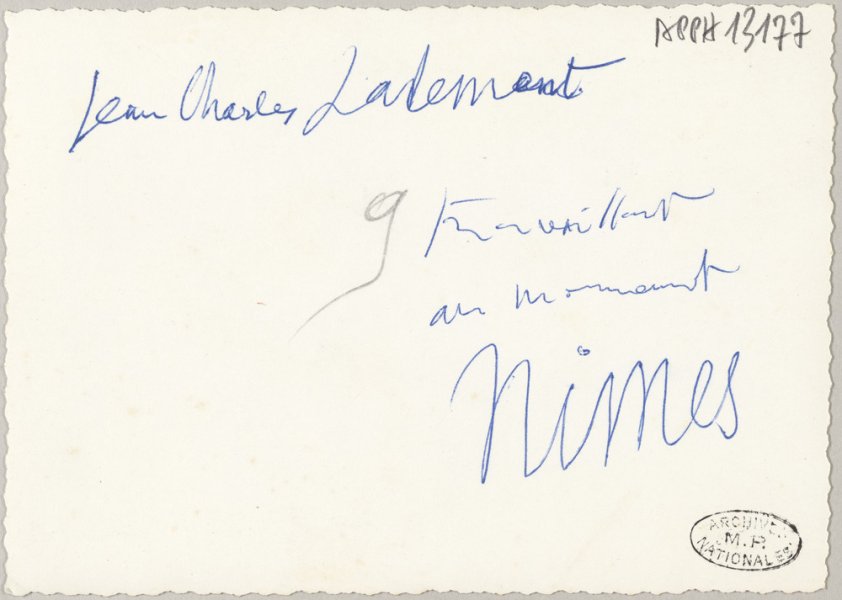 APPH 13177
Jean Charles
9
travaillant
au monument
Nimes
ARCHIVES
M.P.
NATIONALES